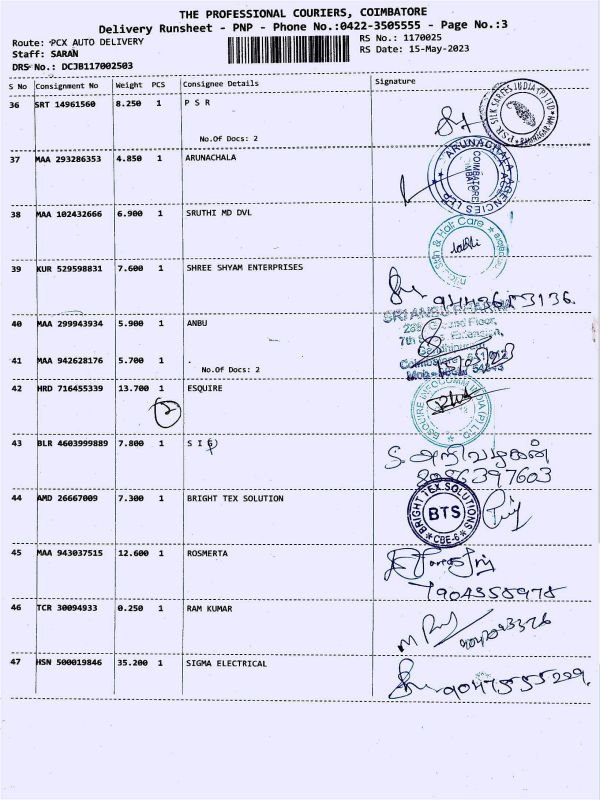 THE PROFESSIONAL COURIERS, COIMBATORE
Delivery Runsheet - PNP - Phone No.:0422-3505555 - Page No.:3
Route: PCX AUTO DELIVERY
RS No.: 1170025
Staff: SARAN
RS Date: 15-May-2023
DRS No.: DCJB117002503
S No Consignment No Weight PCS Consignee Details Signature
36 SRT 14961560 8.250 1 P S R
No.Of Docs: 2
37 MAA 293286353 4.850 1 ARUNACHALA
ARUNACHALA AGENCIES
COIMBATORE
38 MAA 102432666 6.900 1 SRUTHI MD DVL
Skin & Hair Care
39 KUR 529598831 7.600 1 SHREE SHYAM ENTERPRISES
40 MAA 299943934 5.900 1 ANBU
41 MAA 942628176 5.700 1 .
No.Of Docs: 2
42 HRD 716455339 13.700 1 ESQUIRE
2
43 BLR 4603999889 7.800 1 S I G
S. அறிவழகன்
8056397603
44 AMD 26667009 7.300 1 BRIGHT TEX SOLUTION
BRIGHT TEX SOLUTIONS
BTS
CBE-6
45 MAA 943037515 12.600 1 ROSMERTA
46 TCR 30094933 0.250 1 RAM KUMAR
47 HSN 500019846 35.200 1 SIGMA ELECTRICAL